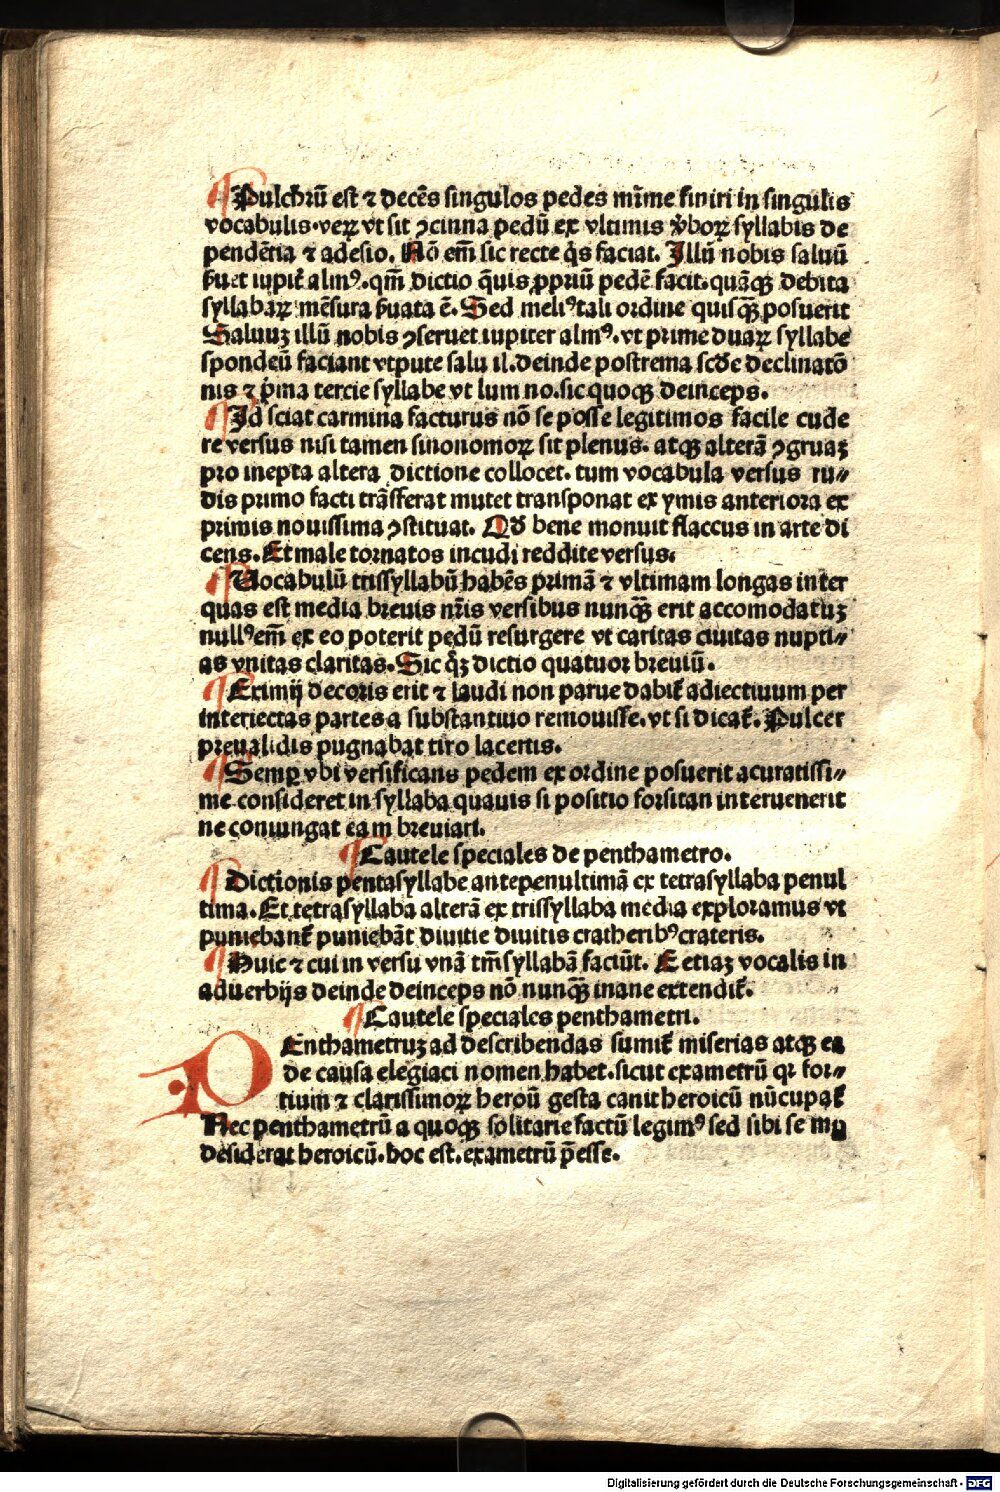 ¶ Pulchrū est ⁊ decēs singulos pedes mīme finiri in singulis
vocabulis. veꝝ vt sit ꝯcinna pedū ex vltimis v̾boꝝ syllabis de
pendētia ⁊ adesio. Nō em̄ sic recte q̄s faciat. Illū nobis saluū
ẜuet iupit̄ almꝰ. qm̄ dictio q̄uis ꝓpriū pedē facit. quāqꝫ debita
syllabaꝝ mēsura ẜuata ē. Sed meliꝰ tali ordine quisqꝫ posuerit
Saluuꝫ illū nobis ꝯseruet iupiter almꝰ. vt prime duaꝝ syllabe
spondeū faciant vtpute salu il. deinde postrema scd̄e declinatō
nis ⁊ p̄ma tercie syllabe vt lum no. sic quoqꝫ deinceps.
¶ Id sciat carmina facturus nō se posse legitimos facile cude
re versus nisi tamen sinonomoꝝ sit plenus. atqꝫ alterā ꝯgruaꝫ
pro inepta altera dictione collocet. tum vocabula versus ru⸗
dis primo facti trāsferat mutet transponat ex ymis anteriora ex
primis nouissima ꝯstituat. Qd̄ bene monuit flaccus in arte di
cens. Et male tornatos incudi reddite versus.
¶ Uocabulū trissyllabū habēs primā ⁊ vltimam longas inter
quas est media breuis nr̄is versibus nunqꝫ̄ erit accomodatuꝫ
nullꝰ em̄ ex eo poterit pedū resurgere vt caritas ciuitas nupti⸗
as vnitas claritas. Sic q̄ꝫ dictio quatuor breuiū.
¶ Eximij decoris erit ⁊ laudi non parue dabit̄ adiectiuum per
interiectas partes a substantiuo remouisse. vt si dicat̄. Pulcer
preualidis pugnabat tiro lacertis.
¶ Semꝑ vbi versificans pedem ex ordine posuerit acuratissi⸗
me consideret in syllaba quauis si positio forsitan interuenerit
ne coniungat eam breuiari.
¶ Cautele speciales de penthametro.
¶ Dictionis pentasyllabe antepenultimā ex tetrasyllaba penul
tima. Et tetrasyllaba alterā ex trissyllaba media exploramus vt
puniebant̄ puniebāt diuitie diuitis cratheribꝰ crateris.
¶ Huic ⁊ cui in versu vnā tm̄ syllabā faciūt. E etiaꝫ vocalis in
aduerbijs deinde deinceps nō nunqꝫ̄ inane extendit̄.
¶ Cautele speciales penthametri.
PEnthametruꝫ ad describendas sumit̄ miserias atqꝫ ea
de causa elegiaci nomen habet. sicut exametrū qꝛ for⸗
tium ⁊ clarissimoꝝ heroū gesta canit heroicū nūcupat̄
Nec penthametrū a quoqꝫ solitarie factū legimꝰ sed sibi se mꝑ
desiderat heroicū. hoc est. exametrū p̄esse.
Digitalisierung gefördert durch die Deutsche Forschungsgemeinschaft - DFG